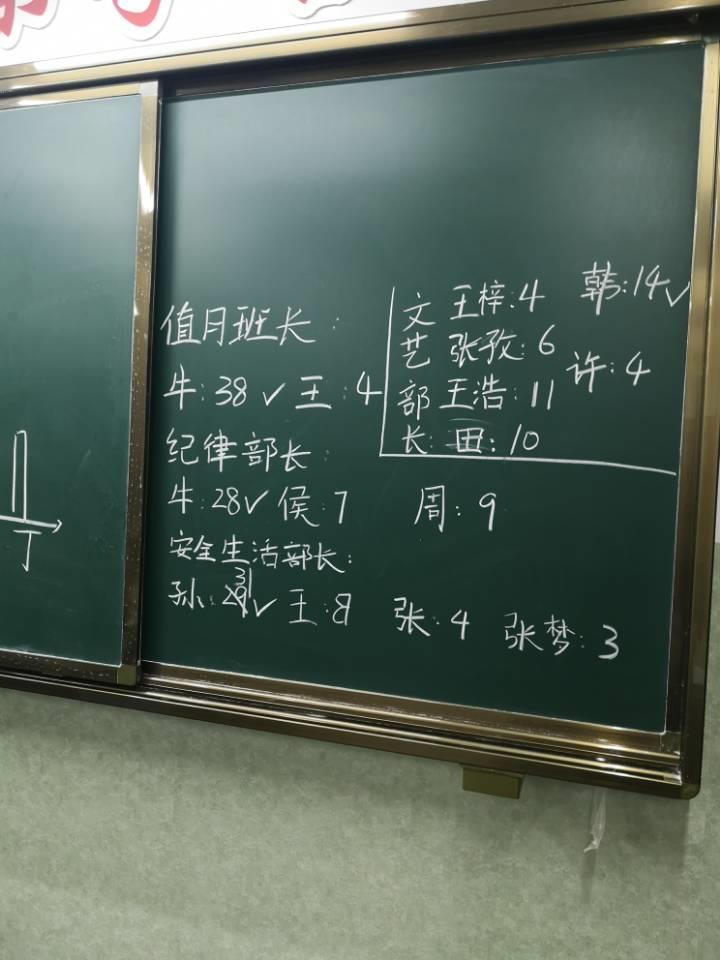 值月班长:
牛:38✓ 王:4
纪律部长:
牛:28✓ 侯:7 周:9
安全生活部长:
孙:✓ 王:8 张:4 张梦:3
文艺部长:
王梓:4 韩:14✓
张孜:6 许:4
王浩:11
田:10
丁